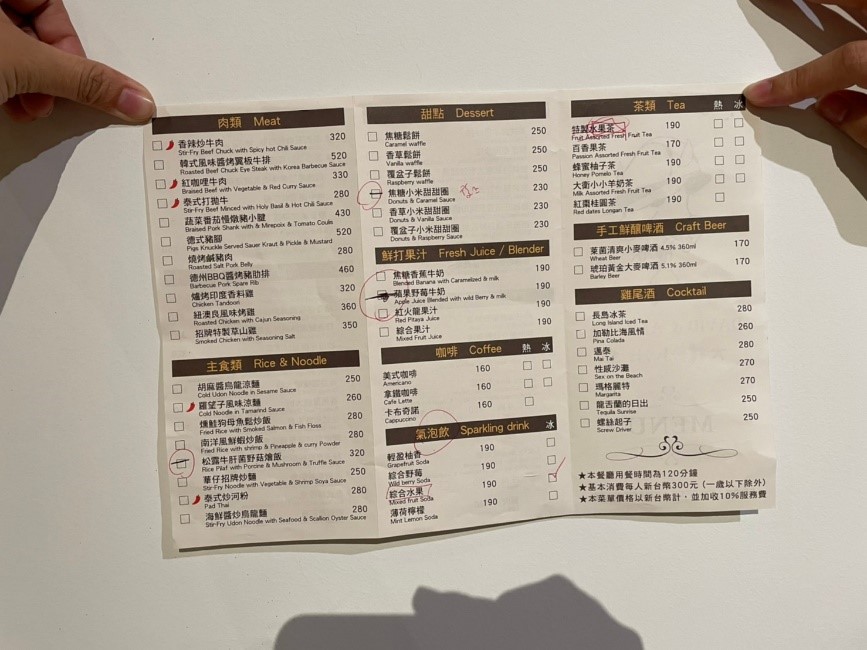 肉類 Meat
香辣炒牛肉 320
Stir-Fry Beef Chuck with Spicy hot Chili Sauce
韓式風味醬烤翼板牛排 520
Roasted Beef Chuck Eye Steak with Korea Barbecue Sauce
紅咖哩牛肉 330
Braised Beef with Vegetable & Red Curry Sauce
泰式打拋牛 280
Stir-Fry Beef Minced with Holy Basil & Hot Chili Sauce
蔬菜番茄慢燉豬小腱 430
Braised Pork Shank with & Mirepoix & Tomato Coulis
德式豬腳 520
Pigs Knuckle Served Sauer Kraut & Pickle & Mustard
燒烤鹹豬肉 280
Roasted Salt Pork Belly
德州BBQ醬烤豬肋排 460
Barbecue Pork Spare Rib
爐烤印度香料雞 320
Chicken Tandoori
紐澳良風味烤雞 360
Roasted Chicken with Cajun Seasoning
招牌特製草山雞 350
Smoked Chicken with Seasoning Salt
主食類 Rice & Noodle
胡麻醬烏龍涼麵 250
Cold Udon Noodle in Sesame Sauce
羅望子風味涼麵 260
Cold Noodle in Tamarind Sauce
燻鮭鮈母魚鬆炒飯 280
Fried Rice with Smoked Salmon & Fish Floss
南洋風鮮蝦炒飯 280
Fried Rice with shrimp & Pineapple & curry Powder
松露牛肝菌野菇燴飯 320
Rice Pilaf with Porcine & Mushroom & Truffle Sauce
華仔招牌炒麵 250
Stir-Fry Noodle with Vegetable & Shrimp Soya Sauce
泰式炒河粉 280
Pad Thai
海鮮醬炒烏龍麵 280
Stir-Fry Udon Noodle with Seafood & Scallion Oyster Sauce
甜點 Dessert
焦糖鬆餅 250
Caramel waffle
香草鬆餅 250
Vanilla waffle
覆盆子鬆餅 250
Raspberry waffle
焦糖小米甜甜圈 230
Donuts & Caramel Sauce
香草小米甜甜圈 230
Donuts & Vanilla Sauce
覆盆子小米甜甜圈 230
Donuts & Raspberry Sauce
鮮打果汁 Fresh Juice / Blender
焦糖香蕉牛奶 190
Blended Banana with Caramelized & milk
蘋果野莓牛奶 190
Apple Juice Blended with wild Berry & milk
紅火龍果汁 190
Red Pitaya Juice
綜合果汁 190
Mixed Fruit Juice
咖啡 Coffee 熱 冰
美式咖啡 160
Americano
拿鐵咖啡 160
Cafe Latte
卡布奇諾 160
Cappuccino
氣泡飲 Sparkling drink 冰
輕盈柚香 190
Grapefruit Soda
綜合野莓 190
Wild berry Soda
綜合水果 190
Mixed fruit Soda
薄荷檸檬 190
Mint Lemon Soda
茶類 Tea 熱 冰
特製水果茶 190
Fruit Assorted Fresh Fruit Tea
百香果茶 170
Passion Assorted Fresh Fruit Tea
蜂蜜柚子茶 190
Honey Pomelo Tea
大衛小小羊奶茶 190
Milk Assorted Fresh Fruit Tea
紅棗桂圓茶 190
Red dates Longan Tea
手工鮮釀啤酒 Craft Beer
萊茵清爽小麥啤酒 4.5% 360ml 170
Wheat Beer
琥珀黃金大麥啤酒 5.1% 360ml 170
Barley Beer
雞尾酒 Cocktail
長島冰茶 280
Long Island Iced Tea
加勒比海風情 260
Pina Colada
邁泰 280
Mai Tai
性感沙灘 270
Sex on the Beach
瑪格麗特 270
Margarita
龍舌蘭的日出 250
Tequila Sunrise
螺絲起子 250
Screw Driver
★本餐廳用餐時間為120分鐘
★基本消費每人新台幣300元(一歲以下除外)
★本菜單價格以新台幣計，並加收10%服務費